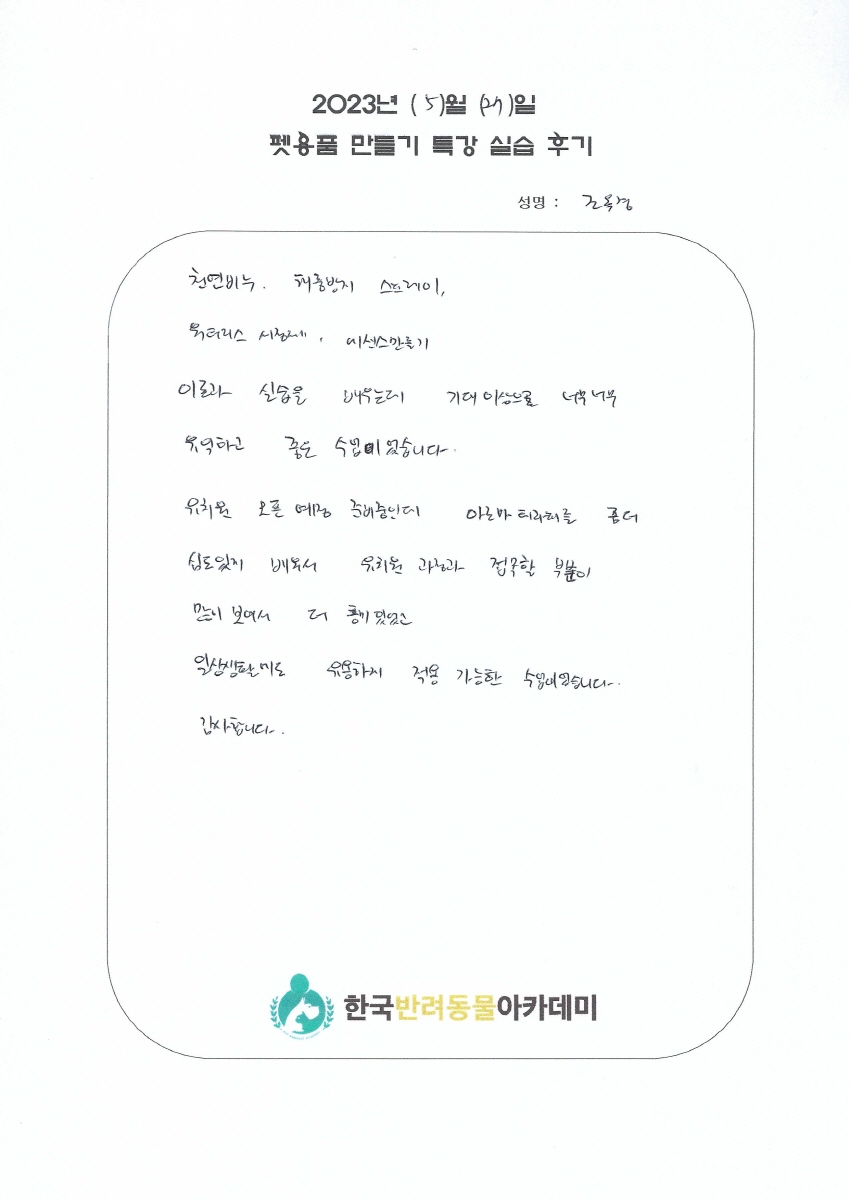 2023년 (5)월 (27)일
펫용품 만들기 특강 실습 후기
성명 : 조옥경
천연비누. 해충방지 스프레이,
워터리스 세정제, 에센스만들기
이론과 실습을 배우는데 기대 이상으로 너무너무
유익하고 좋은 수업이었습니다.
유치원 오픈 예정 준비중인데 아로마 테라피를 좀더
심도있게 배워서 유치원 과정과 접목할 부분이
많이 보여서 더 흥미 있었고
일상생활에도 유용하게 적용 가능한 수업이었습니다.
감사합니다.
한국반려동물아카데미